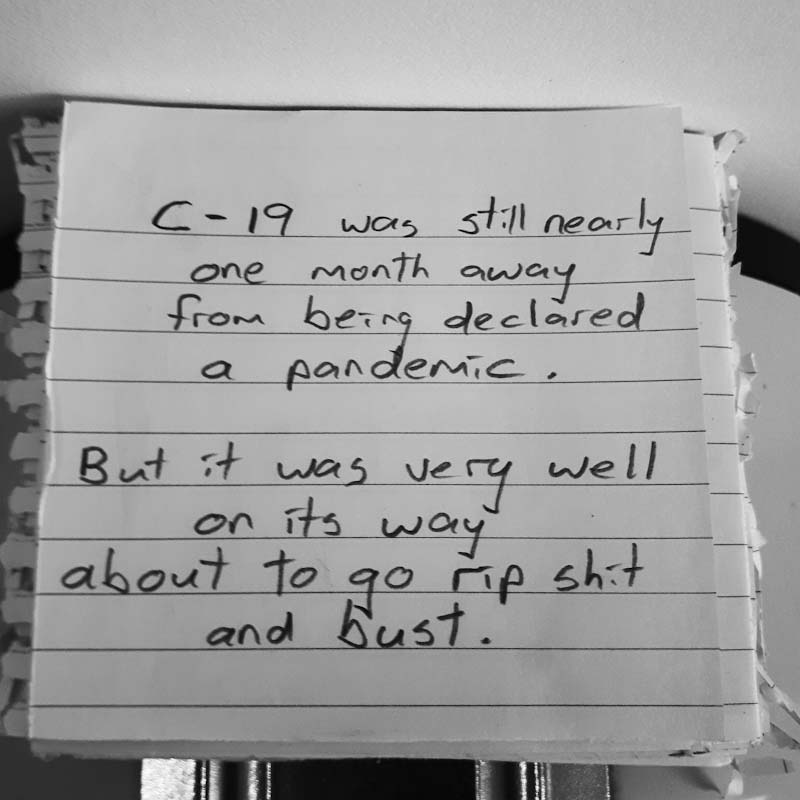 C-19 was still nearly
one month away
from being declared
a pandemic.
But it was very well
on its way
about to go rip shit
and bust.